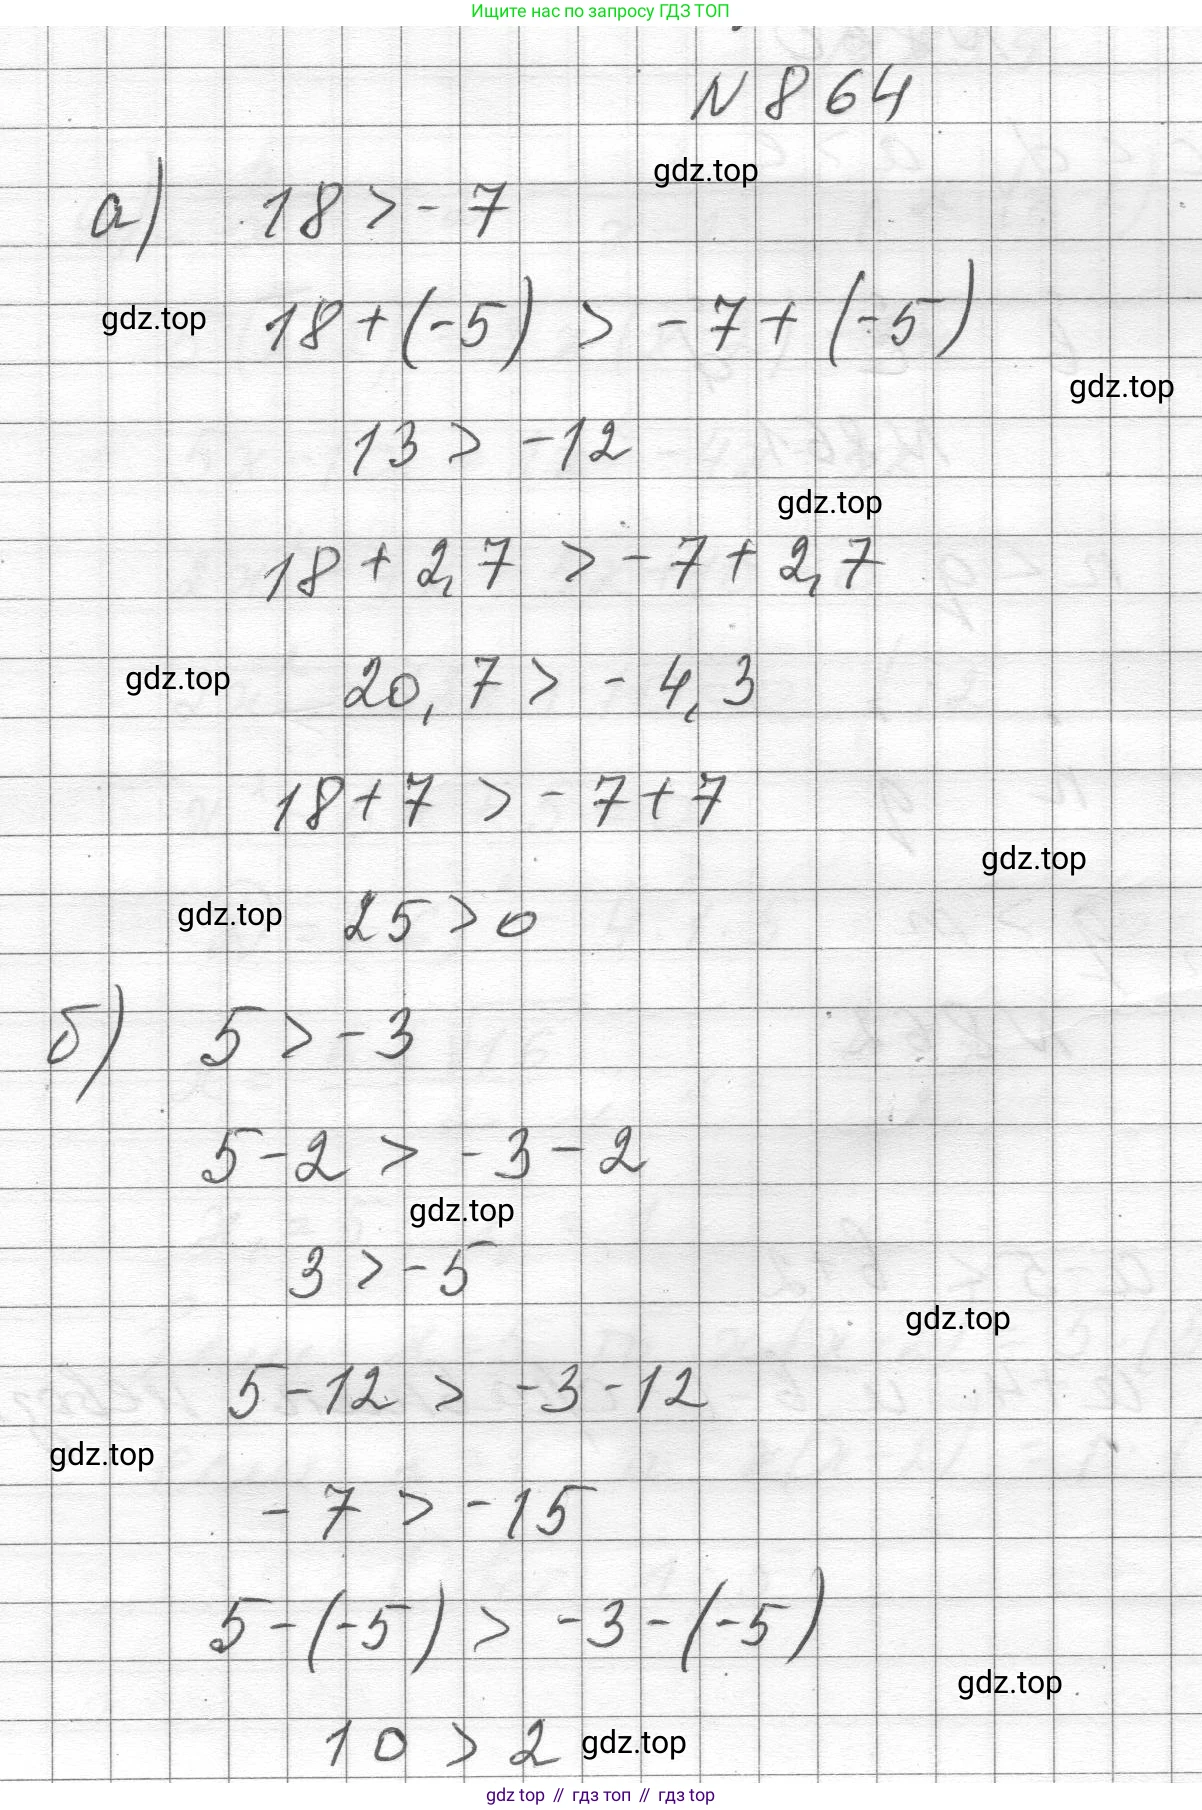 Ищите нас по запросу ГДЗ ТОП
N 864
gdz.top
а) 18 > - 7
gdz.top
18 + (-5) > - 7 + (-5)
gdz.top
13 > -12
gdz.top
18 + 2,7 > - 7 + 2,7
gdz.top
20,7 > - 4,3
18 + 7 > - 7 + 7
gdz.top
gdz.top
25 > 0
б) 5 > - 3
5 - 2 > - 3 - 2
gdz.top
3 > - 5
gdz.top
5 - 12 > - 3 - 12
gdz.top
- 7 > - 15
5 - (-5) > - 3 - (-5)
gdz.top
10 > 2
gdz.top
gdz top // гдз топ // gdz top